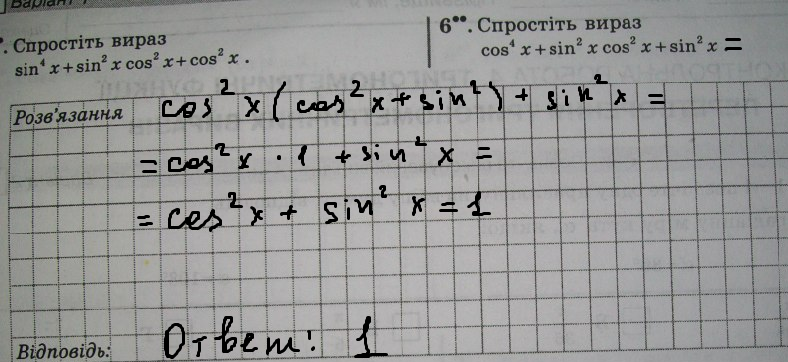 Варіант
. Спростіть вираз
sin⁴ x + sin² x cos² x + cos² x .
6••. Спростіть вираз
cos⁴ x + sin² x cos² x + sin² x =
Розв'язання
cos² x (cos² x + sin²) + sin² x =
= cos² x · 1 + sin² x =
= cos² x + sin² x = 1
Відповідь:
Ответ: 1